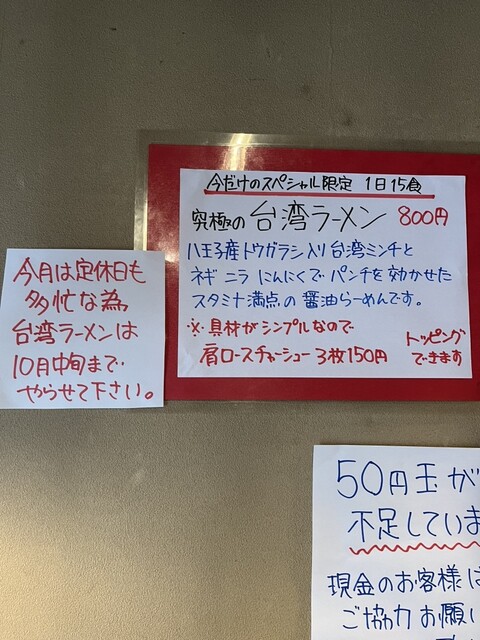 今だけのスペシャル限定 1日15食
究極の台湾ラーメン 800円
八王子産トウガラシ入り台湾ミンチと
ネギ ニラ にんにくで パンチを効かせた
スタミナ満点の醤油らーめんです。
※具材がシンプルなので
肩ロースチャーシュー 3枚150円
トッピング
できます
今月は定休日も
多忙な為
台湾ラーメンは
10月中旬まで
やらせて下さい。
50円玉が
不足していま
現金のお客様は
ご協力お願い